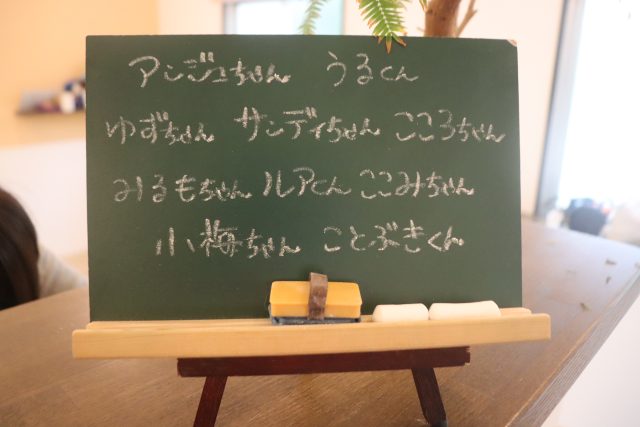 アンジュちゃん うるくん
ゆずちゃん サンディちゃん こころちゃん
みるもちゃん ルアくん ここみちゃん
小梅ちゃん ことぶきくん